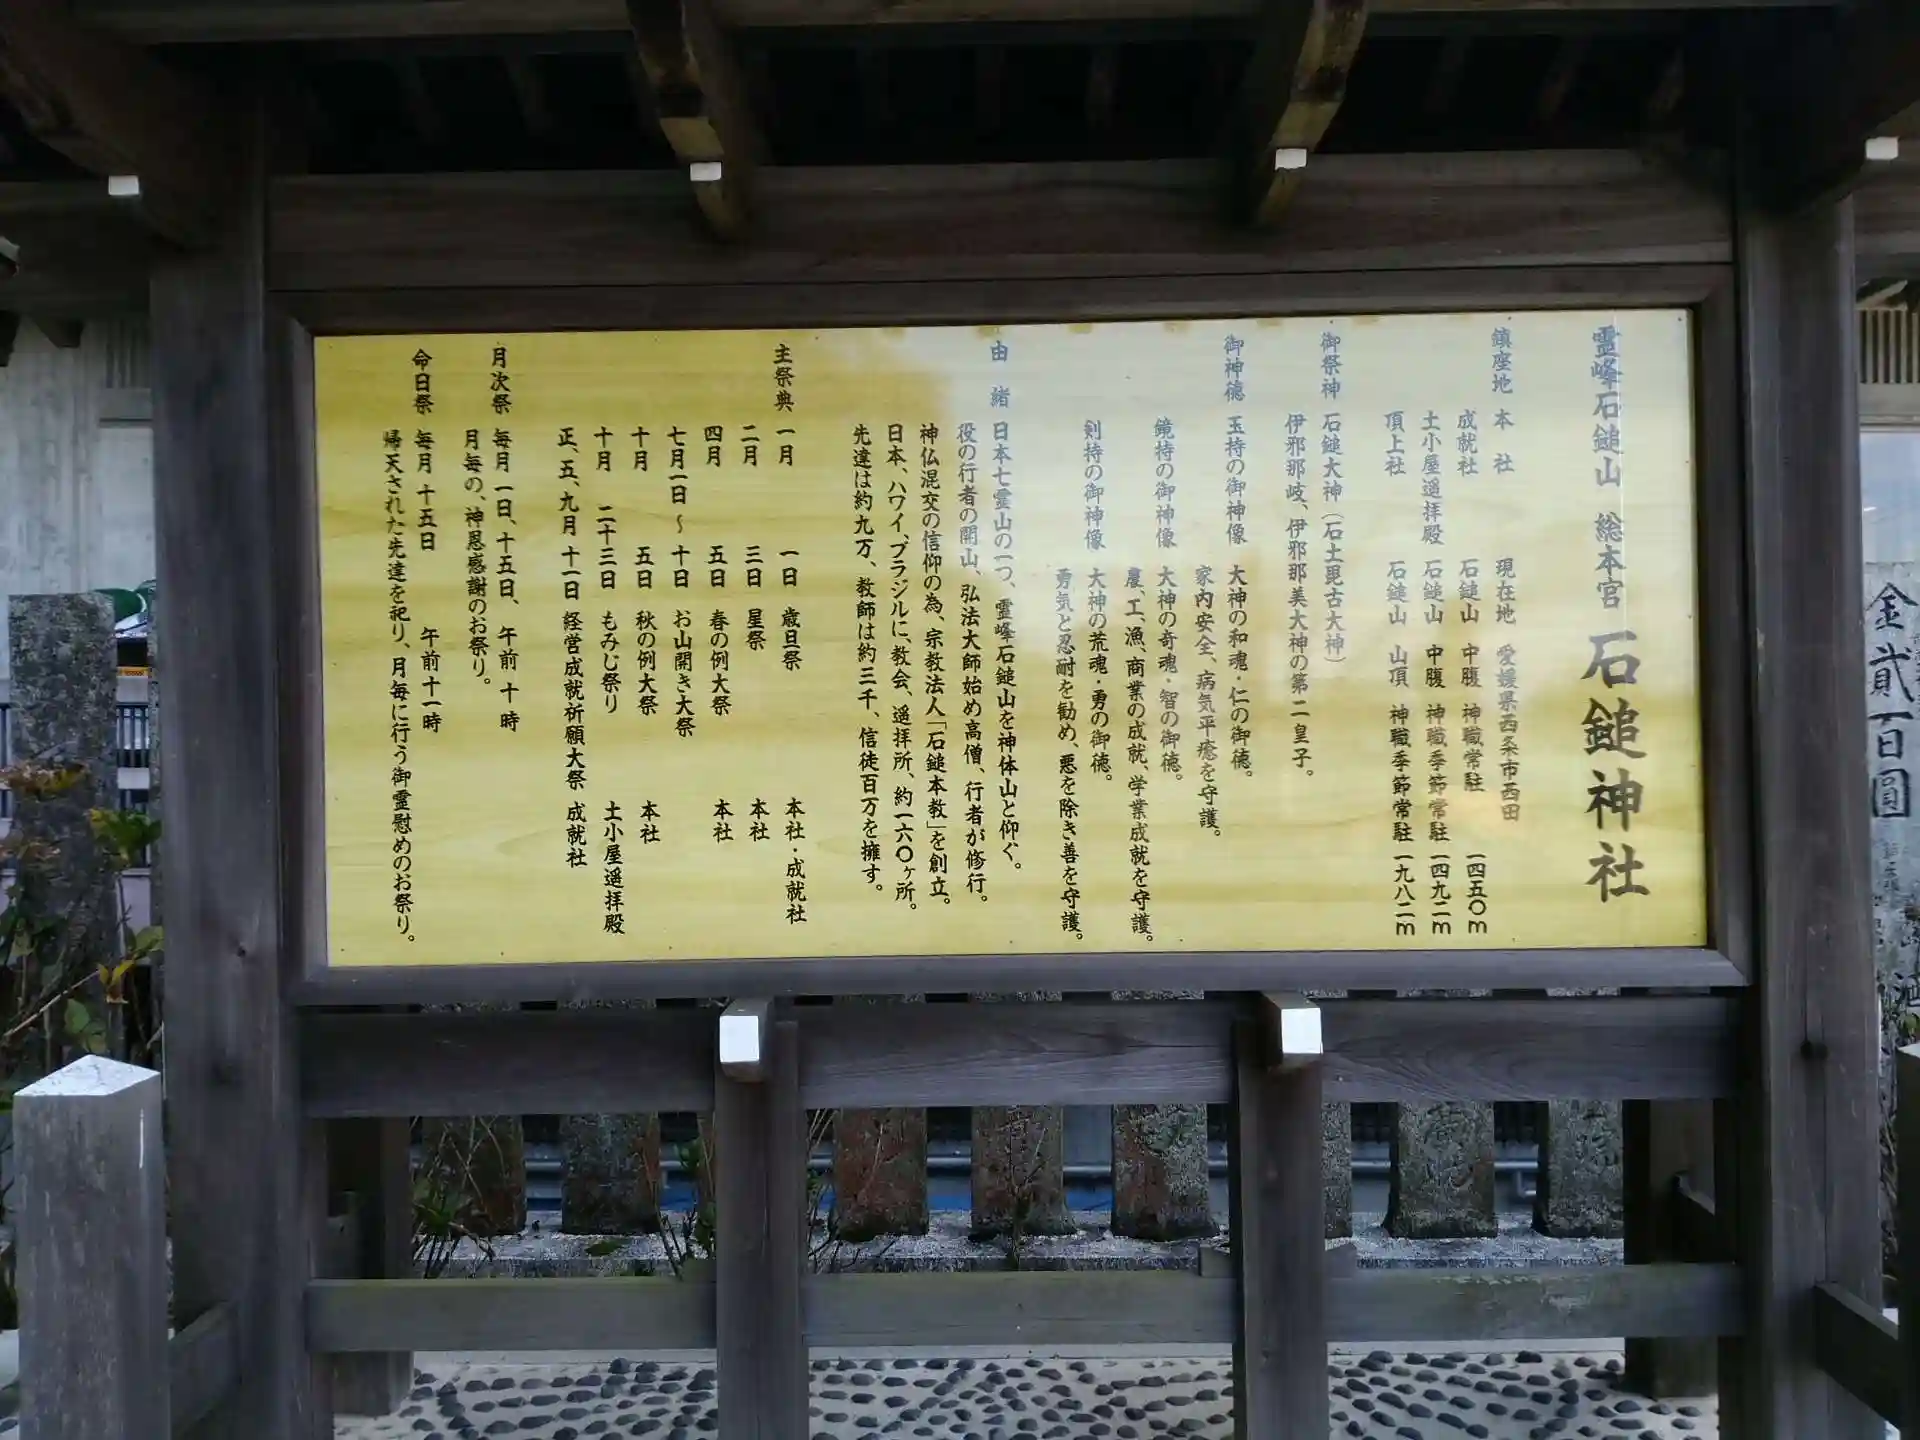 霊峰石鎚山 総本宮 石鎚神社
鎮座地 本社 現在地 愛媛県西条市西田
成就社 石鎚山 中腹 神職常駐 一四五〇m
土小屋遥拝殿 石鎚山 中腹 神職季節常駐 一四九二m
頂上社 石鎚山 山頂 神職季節常駐 一九八二m
御祭神 石鎚大神（石土毘古大神）
伊邪那岐、伊邪那美大神の第二皇子。
御神徳 玉持の御神像 大神の和魂・仁の御徳。
家内安全、病気平癒を守護。
鏡持の御神像 大神の奇魂・智の御徳。
農、工、漁、商業の成就、学業成就を守護。
剣持の御神像 大神の荒魂・勇の御徳。
勇気と忍耐を勧め、悪を除き善を守護。
由緒 日本七霊山の一つ、霊峰石鎚山を神体山と仰ぐ。
役の行者の開山、弘法大師始め高僧、行者が修行。
神仏混交の信仰の為、宗教法人「石鎚本教」を創立。
日本、ハワイ、ブラジルに、教会、遥拝所、約一六〇ヶ所。
先達は約九万、教師は約三千、信徒百万を擁す。
主祭典 一月 一日 歳旦祭 本社・成就社
二月 三日 星祭 本社
四月 五日 春の例大祭 本社
七月一日～十日 お山開き大祭
十月 五日 秋の例大祭 本社
十月 二十三日 もみじ祭り 土小屋遥拝殿
正、五、九月 十一日 経営成就祈願大祭 成就社
月次祭 毎月 一日、十五日、午前 十時
月毎の、神恩感謝のお祭り。
命日祭 毎月 十五日 午前 十一時
帰天された先達を祀り、月毎に行う御霊慰めのお祭り。
金貳百圓